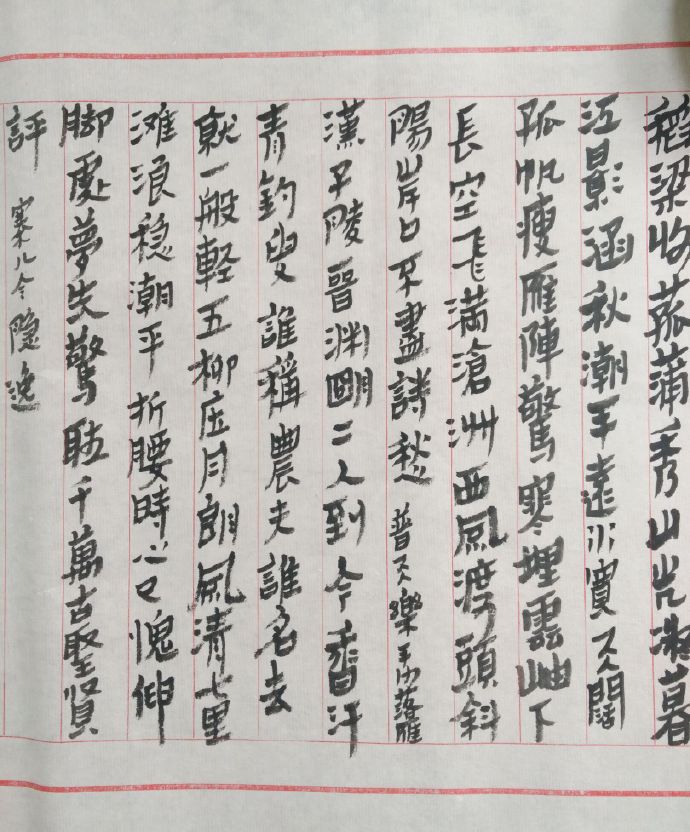 稻梁收菰蒲秀山光凝暮
江影涵秋潮平遠水寬天闊
孤帆瘦雁陣驚寒埋雲岫下
長空飞滿滄洲西風渡頭斜
陽岸口不盡詩愁 普天樂平沙落雁
漢子陵晉渊明二人到今香汗
青钓叟誰稱農夫誰名去
就一般輕五柳庄月朗風清七里
滩浪稳潮平折腰時心已愧伸
脚處夢先驚聼千萬古聖賢
評 寨儿令隐逸